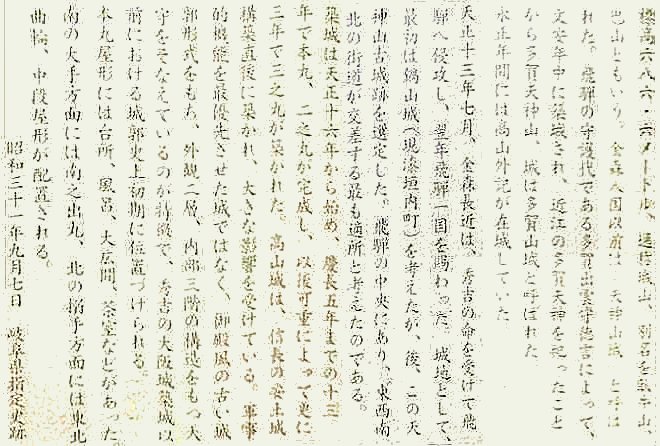 標高六八六・六メートル。通称城山、別名を臥牛山、
巴山ともいう。金森入国以前は「天神山城」と呼ば
れた。飛騨の守護代である多賀出雲守徳言によって、
文安年中に築城され、近江の多賀天神を祀ったこと
から多賀天神山、城は多賀山城と呼ばれた。
永正年間には高山外記が在城していた。
天正十三年七月、金森長近は、秀吉の命を受けて飛
騨へ侵攻し、翌年飛騨一国を賜わった。城地として、
最初は鍋山城(現漆垣内町)を考えたが、後、この天
神山古城跡を選定した。飛騨の中央にあり、東西南
北の街道が交差する最も適所と考えたのである。
築城は天正十六年から始め、慶長五年までの十三
年で本丸、二之丸が完成し、以後可重によって更に
三年で三之丸が築かれた。高山城は、信長の安土城
構築直後に築かれ、大きな影響を受けている。軍事
的機能を最優先させた城ではなく、御殿風の古い城
郭形式をもち、外観二層、内部三階の構造をもつ天
守をそなえているのが特徴で、秀吉の大阪城築城以
前における城郭史上初期に位置づけられる。
本丸屋形には台所、風呂、大広間、茶室などがあった。
南の大手方面には南之出丸、北の搦手方面には東北
曲輪、中段屋形が配置される。
昭和三十一年九月七日 岐阜県指定史跡